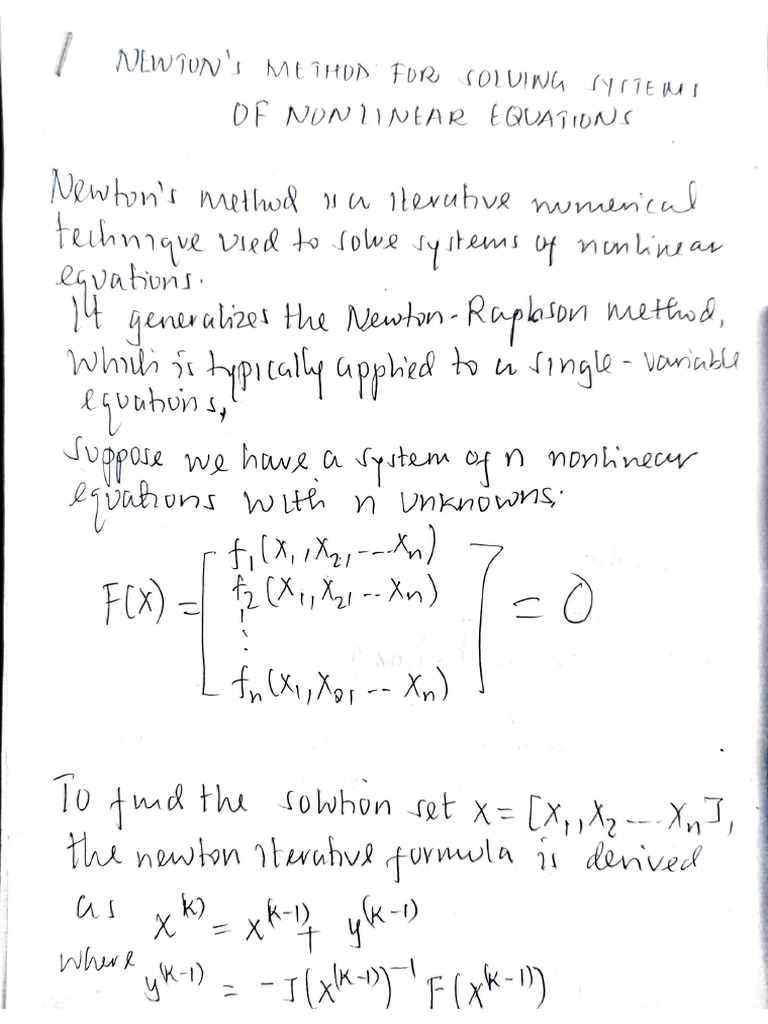 1 NEWTON'S METHOD FOR SOLVING SYSTEMS
OF NONLINEAR EQUATIONS
Newton's method is a iterative numerical
technique used to solve systems of nonlinear
equations.
It generalizes the Newton-Raphson method,
which is typically applied to a single-variable
equations,
Suppose we have a system of n nonlinear
equations with n unknowns:
f₁(x₁, x₂, --- xₙ)
F(X) = [ f₂(x₁, x₂, -- xₙ) ] = 0
⋮
fₙ(x₁, x₂, -- xₙ)
To find the solution set x = [x₁, x₂ --- xₙ],
the newton iterative formula is derived
as x^(k) = x^(k-1) + y^(k-1)
where
y^(k-1) = -J(x^(k-1))^-1 F(x^(k-1))